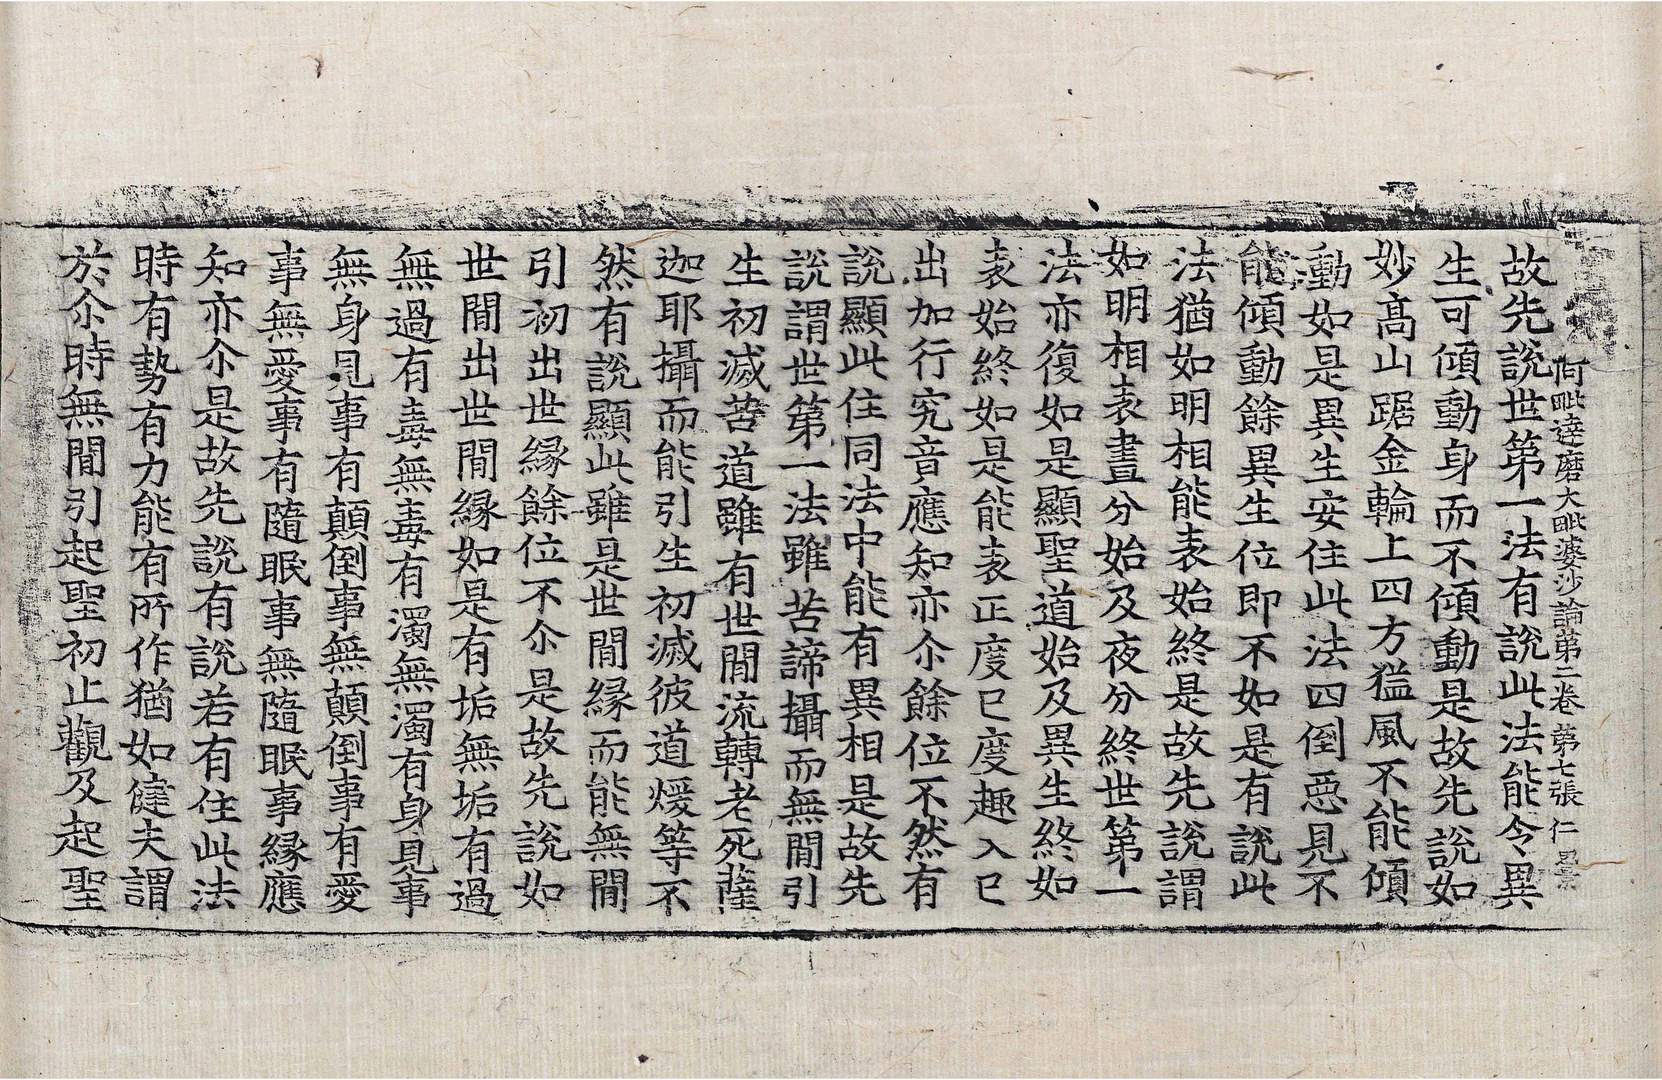 阿毗達磨大毗婆沙論第二卷 第七張 仁
故先說世第一法有說此法能令異
生可傾動身而不傾動是故先說如
妙高山踞金輪上四方猛風不能傾
動如是異生安住此法四倒惡見不
能傾動餘異生位即不如是有說此
法猶如明相能表始終是故先說謂
如明相表晝分始及夜分終世第一
法亦復如是顯聖道始及異生終如
表始終如是能表正度已度趣入已
出加行究竟應知亦尒餘位不然有
說顯此住同法中能有異相是故先
說謂世第一法雖苦諦攝而無閒引
生初滅苦道雖有世閒流轉老死薩
迦耶攝而能引生初滅彼道煖等不
然有說顯此雖是世閒緣而能無閒
引初出世緣餘位不尒是故先說如
世閒出世閒緣如是有垢無垢有過
無過有毒無毒有濁無濁有身見事
無身見事有顛倒事無顛倒事有愛
事無愛事有隨眠事無隨眠事緣應
知亦尒是故先說有說若有住此法
時有勢有力能有所作猶如健夫謂
於尒時無閒引起聖初止觀及起聖